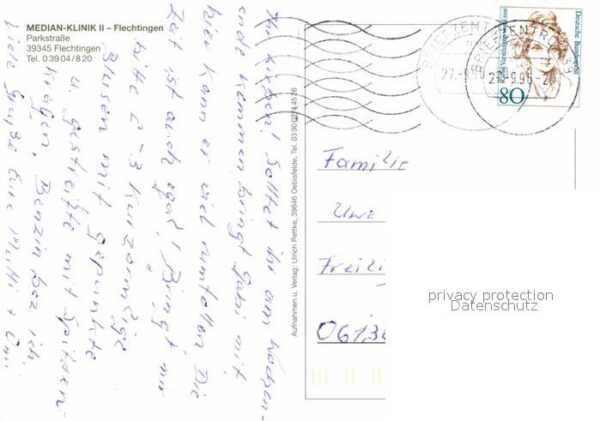 MEDIAN-KLINIK II – Flechtingen
Parkstraße
39345 Flechtingen
Tel. 0 39 04 / 8 20
Ihr Lieben! Solltet ihr am Wochen-
ende kommen bringt Gabi mit
hier kann er viel rumtollen. Die
Zeit ist auch egal! Bringt mir
bitte 2-3 kurzärmlige
Blusen mit gepunkte
u. gestreifte mit Spitzen-
kragen, Benzin bez. ich.
Viele Grüße Eure Mutti +
Aufnahmen u. Verlag: Ulrich Pettke, 39646 Oebisfelde, Tel. 03 90 02 / 4 45 26
BRIEFZENTRUM
BRIEFZENTRUM 39
Deutsche Bundespost
80
Familie
Uwe
privacy protection
Datenschutz